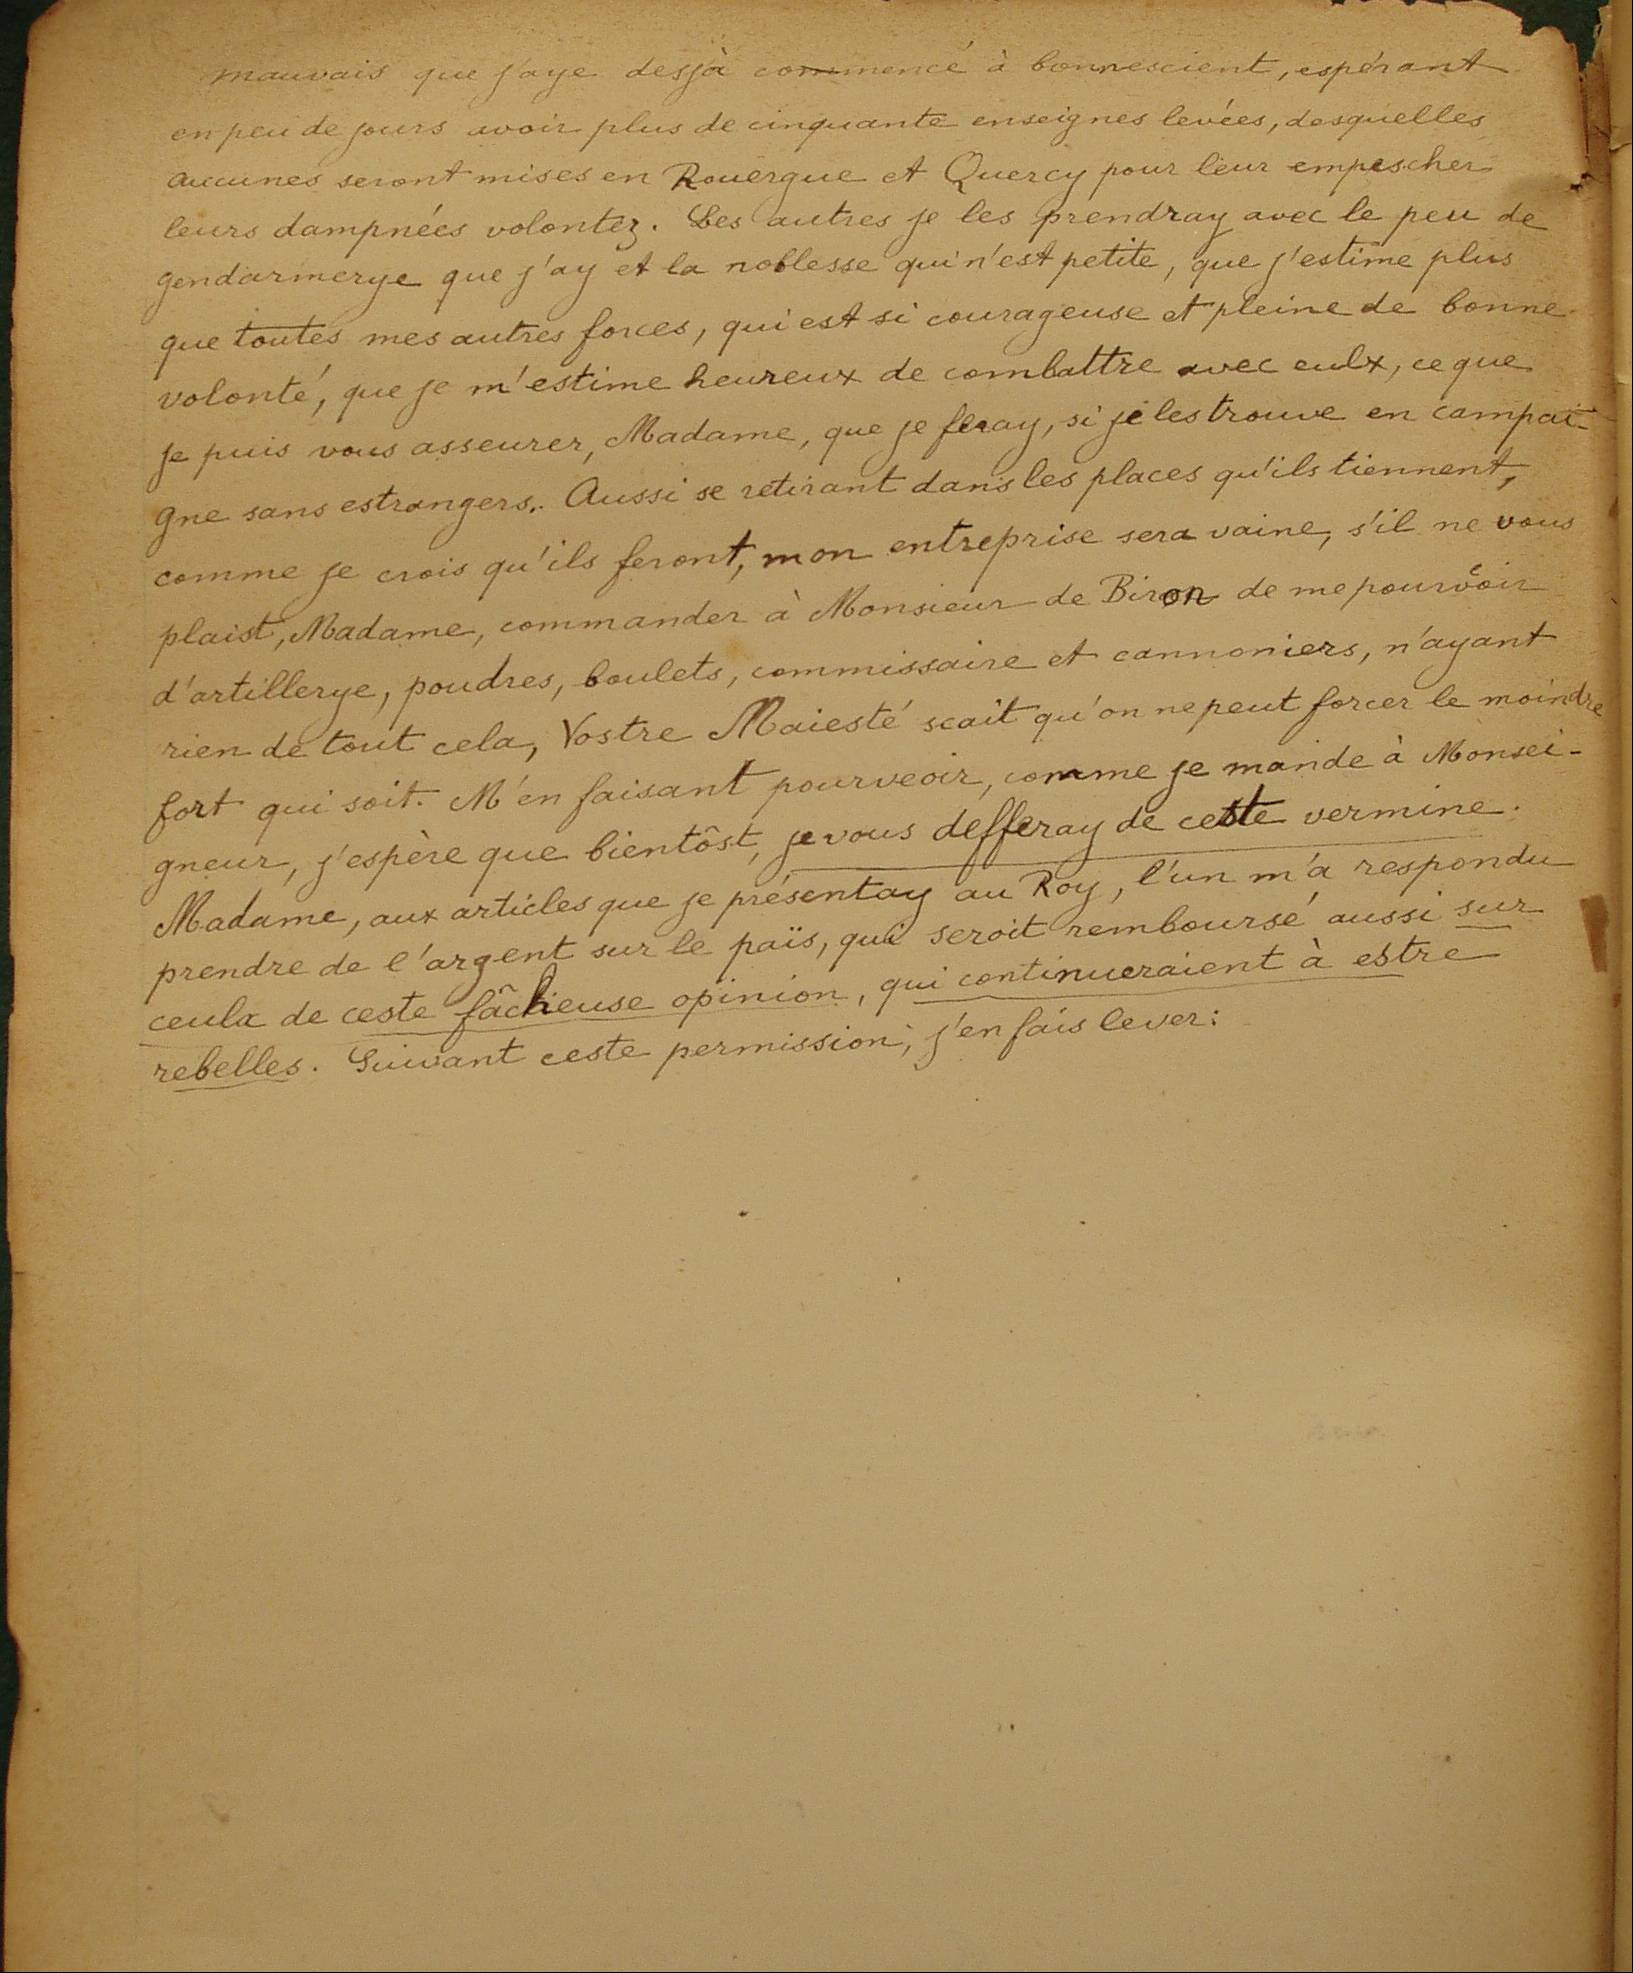 mauvais que j'aye desjà commencé à bonnescient, espérant
en peu de jours avoir plus de cinquante enseignes levées, desquelles
aucunes seront mises en Rouergue et Quercy pour leur empescher
leurs dampnées volontez. Les autres je les prendray avec le peu de
gendarmerye que j'ay et la noblesse qui n'est petite, que j'estime plus
que toutes mes autres forces, qui est si courageuse et pleine de bonne
volonté, que je m'estime heureux de combattre avec eulx, ce que
je puis vous asseurer, Madame, que je feray, si je les trouve en campai-
gne sans estrangers. Aussi se retirant dans les places qu'ils tiennent,
comme je crois qu'ils feront, mon entreprise sera vaine, s'il ne vous
plaist, Madame, commander à Monsieur de Biron de me pourveoir
d'artillerye, poudres, boulets, commissaire et cannoniers, n'ayant
rien de tout cela, Vostre Maiesté scait qu'on ne peut forcer le moindre
fort qui soit. M'en faisant pourveoir, comme je mande à Monsei-
gneur, j'espère que bientôst, je vous defferay de ceste vermine.
Madame, aux articles que je présentay au Roy, l'un m'a respondu
prendre de l'argent sur le païs, qui seroit remboursé aussi sur
ceulx de ceste fâcheuse opinion, qui continueraient à estre
rebelles. Suivant ceste permission, j'en fais lever: